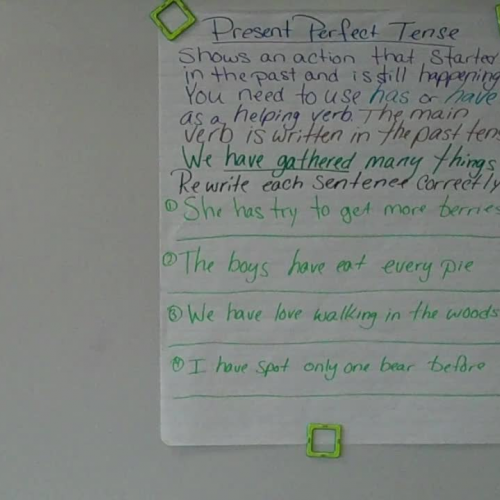 Present Perfect Tense
Shows an action that started
in the past and is still happening
You need to use has or have
as a helping verb. The main
verb is written in the past tens
We have gathered many things
Rewrite each sentence correctly
① She has try to get more berries
② The boys have eat every pie
③ We have love walking in the woods
④ I have spot only one bear before